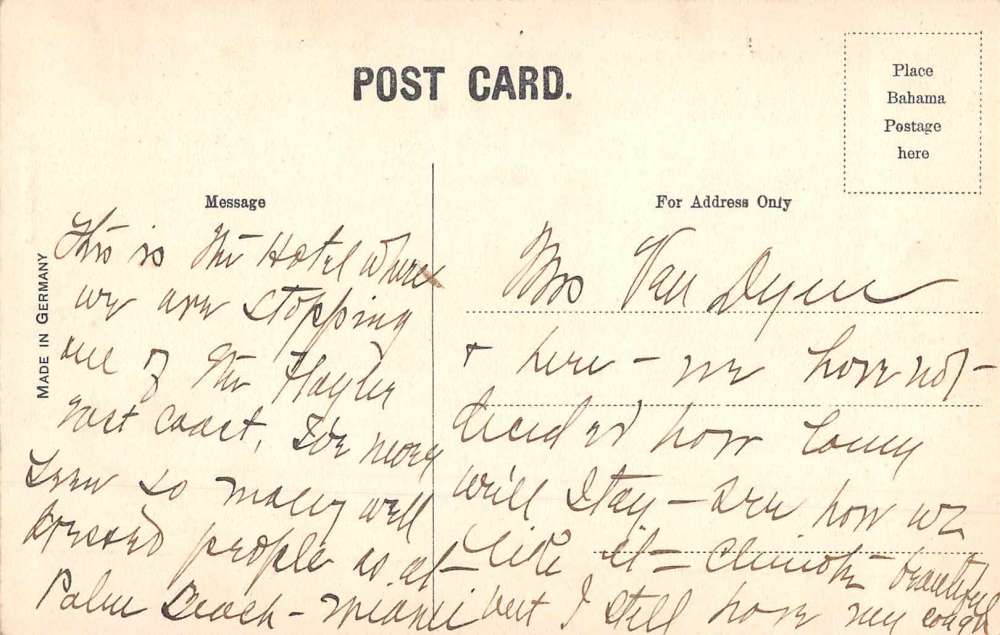 POST CARD.
Place
Bahama
Postage
here
Message
For Address Only
MADE IN GERMANY
This is the Hotel where
we are stopping
one of the Flagler
east coast. I've never
seen so many well
dressed people as at
Palm Beach - Miami
Mrs Van Dyne
& here - we have not
decided how long
we'll stay - see how we
like it - Climate beautiful
but I still have my cough